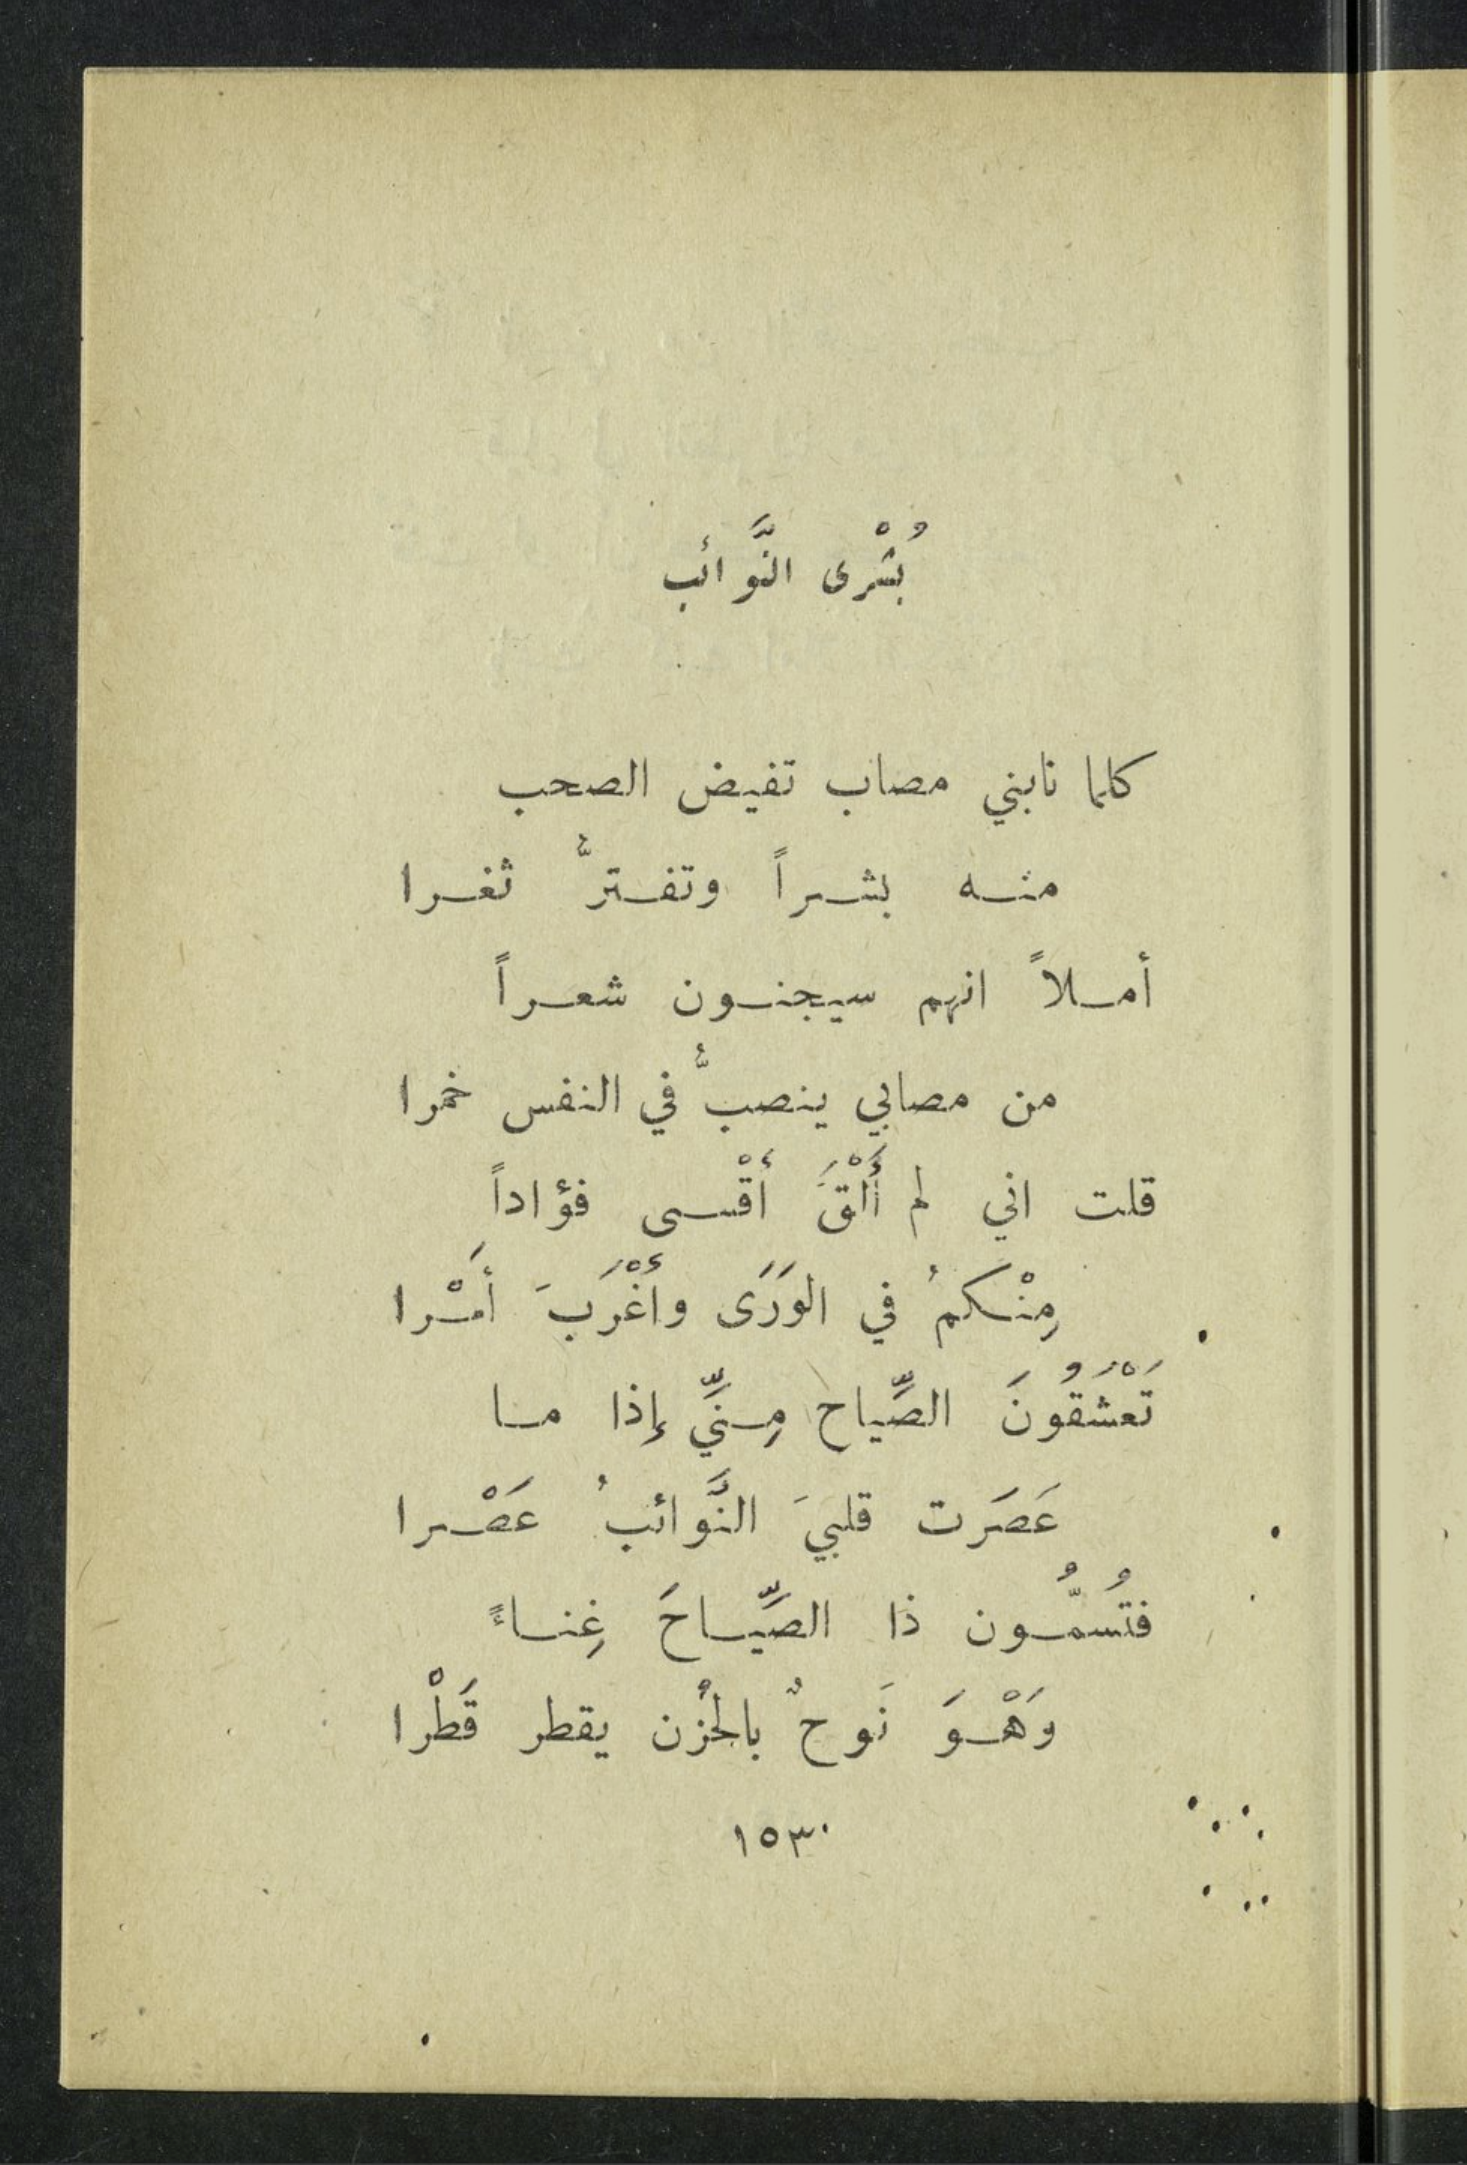 بُشْرى النَّوائب
كلما نابني مصاب تفيض الصحب
منـه بشـراً وتفـترُّ ثغـرا
أمـلاً انهم سيجنـون شعـراً
من مصابي ينصبُّ في النفس خمرا
قلت اني لم أَلْقَ أقْسى فؤاداً
مِنْـكمُ في الوَرَى وأغْرَبَ أمَـْرا
تَعْشَقُونَ الصِّياح مِـنِّي إذا مـا
عَصَرَت قلبيَ النَّوائبُ عَصْـرا
فتُسمُّـون ذا الصِّيـاحَ غِنـاءً
وَهْـوَ نَوحٌ بالحُزن يقطر قَطْرا
١٥٣٠